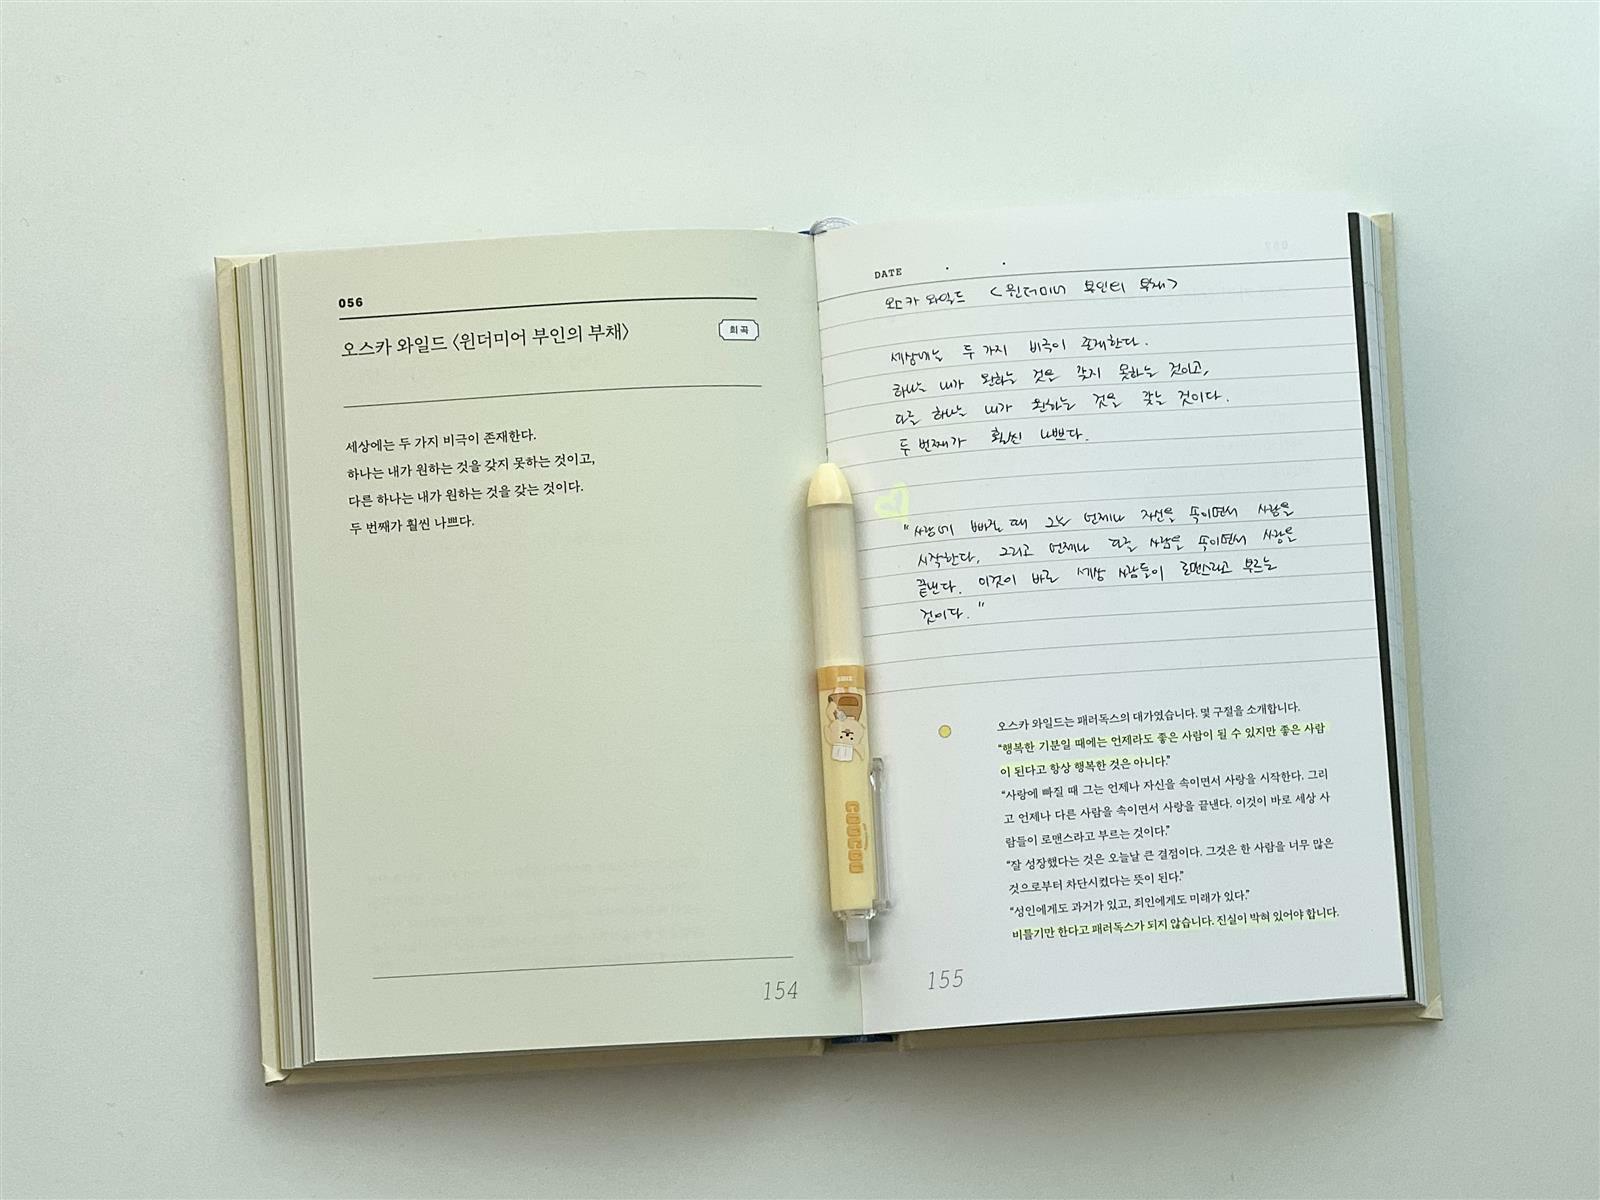 056
오스카 와일드 〈윈더미어 부인의 부채〉
희곡
세상에는 두 가지 비극이 존재한다.
하나는 내가 원하는 것을 갖지 못하는 것이고,
다른 하나는 내가 원하는 것을 갖는 것이다.
두 번째가 훨씬 나쁘다.
154
DATE . .
오스카 와일드 <윈더미어 부인의 부채>
세상에는 두 가지 비극이 존재한다.
하나는 내가 원하는 것을 갖지 못하는 것이고,
다른 하나는 내가 원하는 것을 갖는 것이다.
두 번째가 훨씬 나쁘다.
"사랑에 빠질 때 그는 언제나 자신을 속이면서 사랑을
시작한다. 그리고 언제나 다른 사람을 속이면서 사랑을
끝낸다. 이것이 바로 세상 사람들이 로맨스라고 부르는
것이다."
오스카 와일드는 패러독스의 대가였습니다. 몇 구절을 소개합니다.
“행복한 기분일 때에는 언제라도 좋은 사람이 될 수 있지만 좋은 사람
이 된다고 항상 행복한 것은 아니다.”
“사랑에 빠질 때 그는 언제나 자신을 속이면서 사랑을 시작한다. 그리
고 언제나 다른 사람을 속이면서 사랑을 끝낸다. 이것이 바로 세상 사
람들이 로맨스라고 부르는 것이다.”
“잘 성장했다는 것은 오늘날 큰 결점이다. 그것은 한 사람을 너무 많은
것으로부터 차단시켰다는 뜻이 된다.”
“성인에게도 과거가 있고, 죄인에게도 미래가 있다.”
비틀기만 한다고 패러독스가 되지 않습니다. 진실이 박혀 있어야 합니다.
155